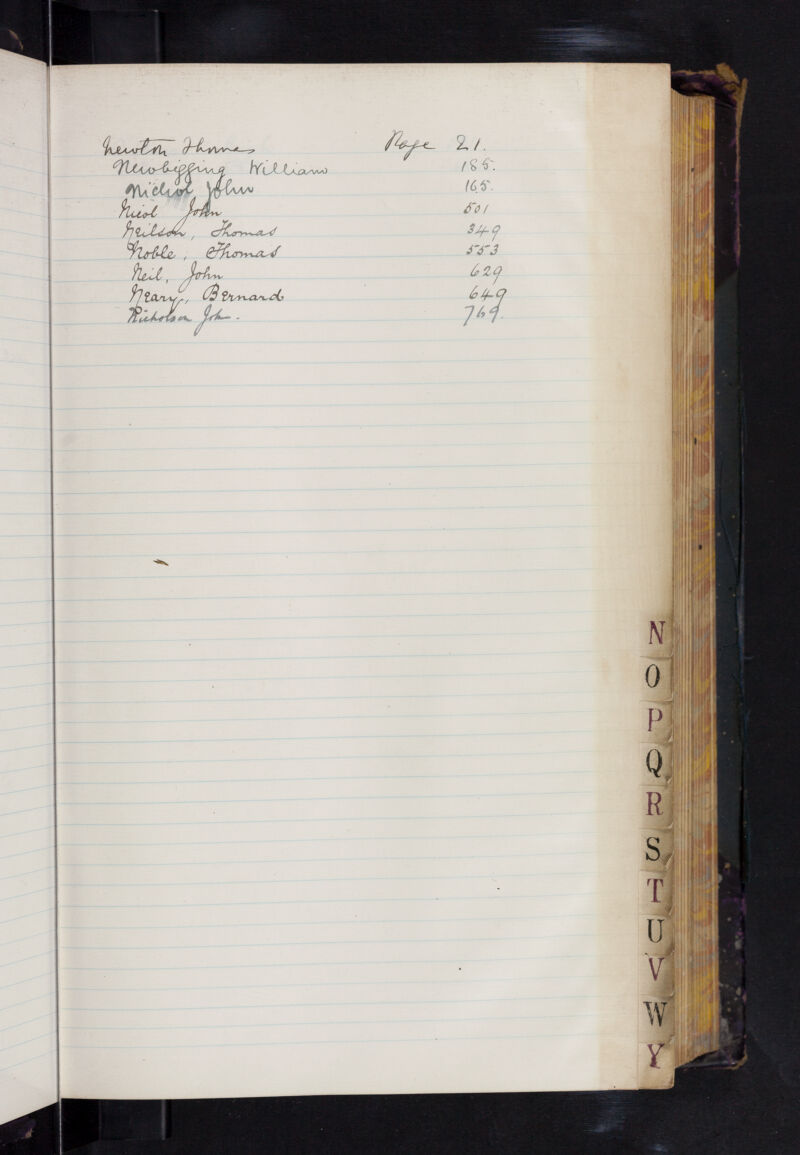 Newton Thomas Page 21.
Newbigging William 185.
Nichol John 165.
Nicol John 501
Neilson, Thomas 349
Noble, Thomas 553
Neil, John 629
Neary, Bernard 649
Nicholson John. 769.
N
O
P
Q
R
S
T
U
V
W
Y